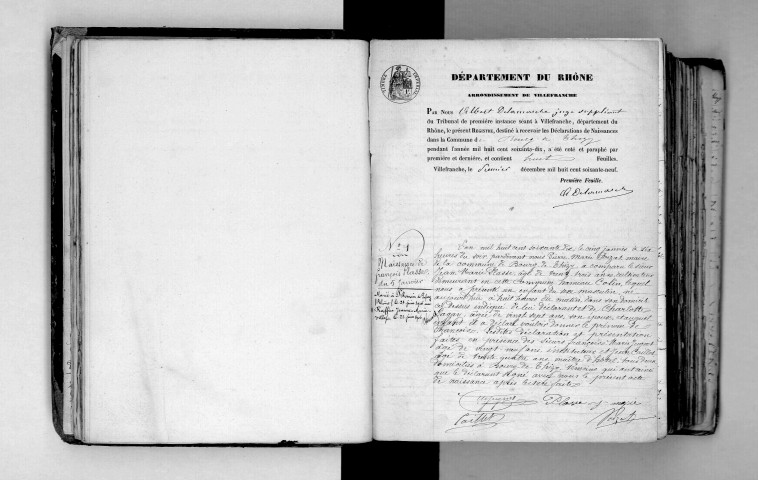 DÉPARTEMENT DU RHÔNE
ARRONDISSEMENT DE VILLEFRANCHE
Par Nous Albert Delamarche juge suppléant
du Tribunal de première instance séant à Villefranche, département du
Rhône, le présent Registre, destiné à recevoir les Déclarations de Naissances
dans la Commune de Bourg de Thizy
pendant l'année mil huit cent soixante-dix, a été coté et paraphé par
première et dernière, et contient huit Feuilles.
Villefranche, le premier décembre mil huit cent soixante-neuf.
Première Feuille.
A Delamarche
N° 1
Naissance de
françois Plasse
du 5 janvier
L'an mil huit cent soixante dix le cinq janvier à six
heures du soir pardevant nous Pierre Marie maire
de la commune de Bourg de Thizy, a comparu le sieur
Jean Marie Plasse âgé de trente trois ans cultivateur
demeurant en cette commune hameau Colin, lequel
nous a présenté un enfant du sexe masculin né
aujourd'hui à huit heures du matin dans son domicile
ci-dessus indiqué de lui déclarant et de Charlotte
âgée de vingt sept ans, son épouse, et auquel
enfant il a déclaré vouloir donner le prénom de
françois. Lesdites déclaration et présentation
faites en présence des sieurs françois Marie
âgé de vingt ans, instituteur et Jean
âgé de trente quatre ans maître d'hôtel, tous deux
domiciliés à Bourg de Thizy, témoins qui ont ainsi
que le déclarant signé avec nous le présent acte
de naissance après lecture faite